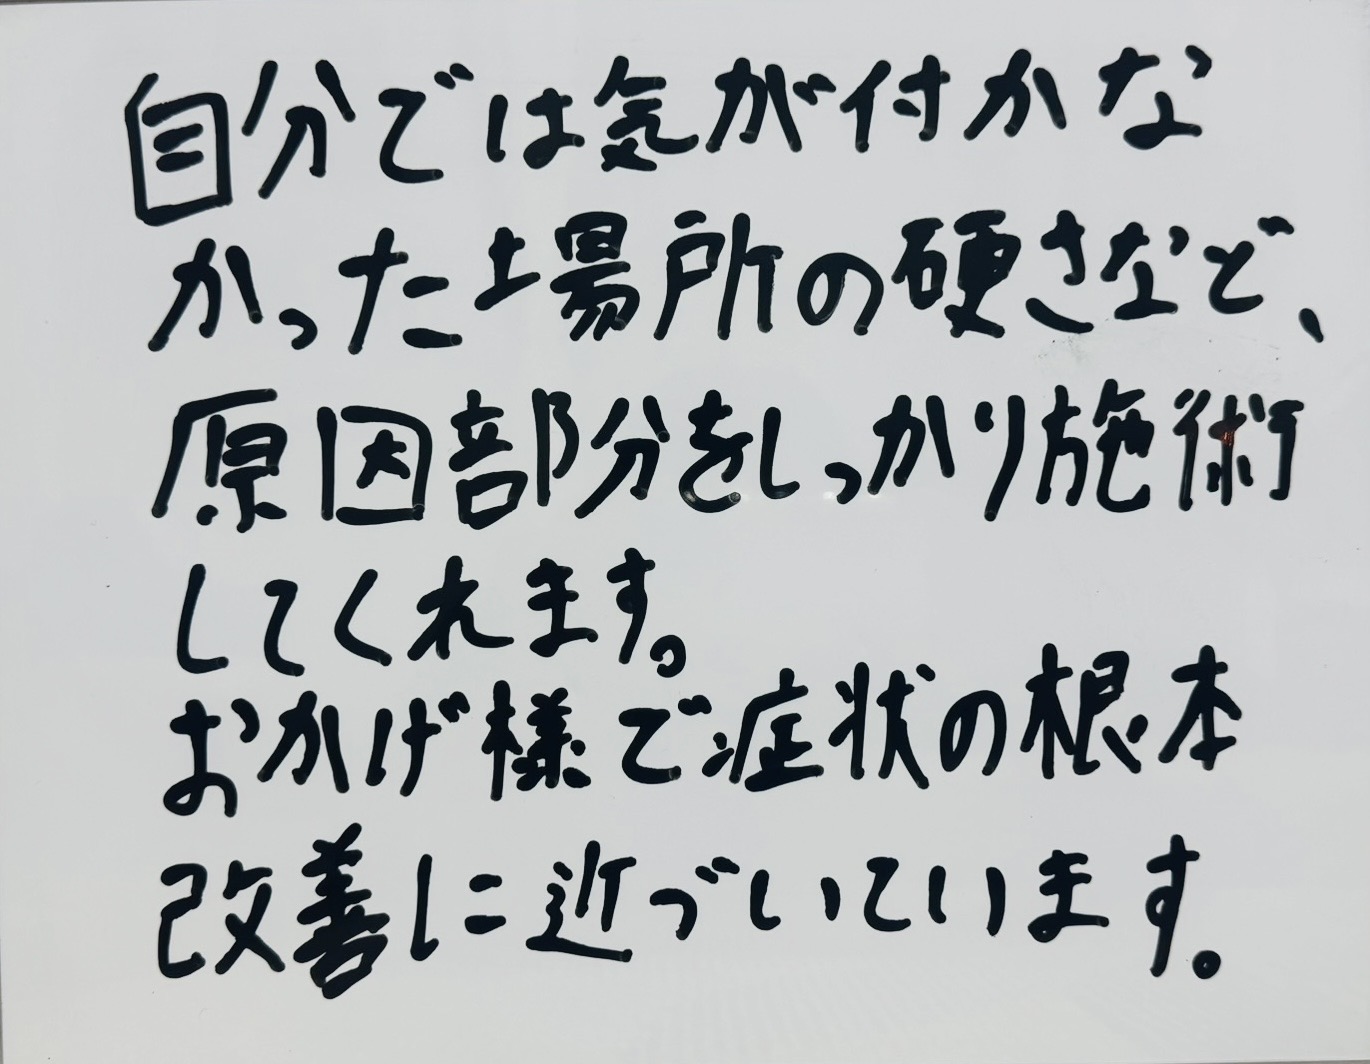 自分では気が付かな
かった場所の硬さなど、
原因部分をしっかり施術
してくれます。
おかげ様で症状の根本
改善に近づいています。